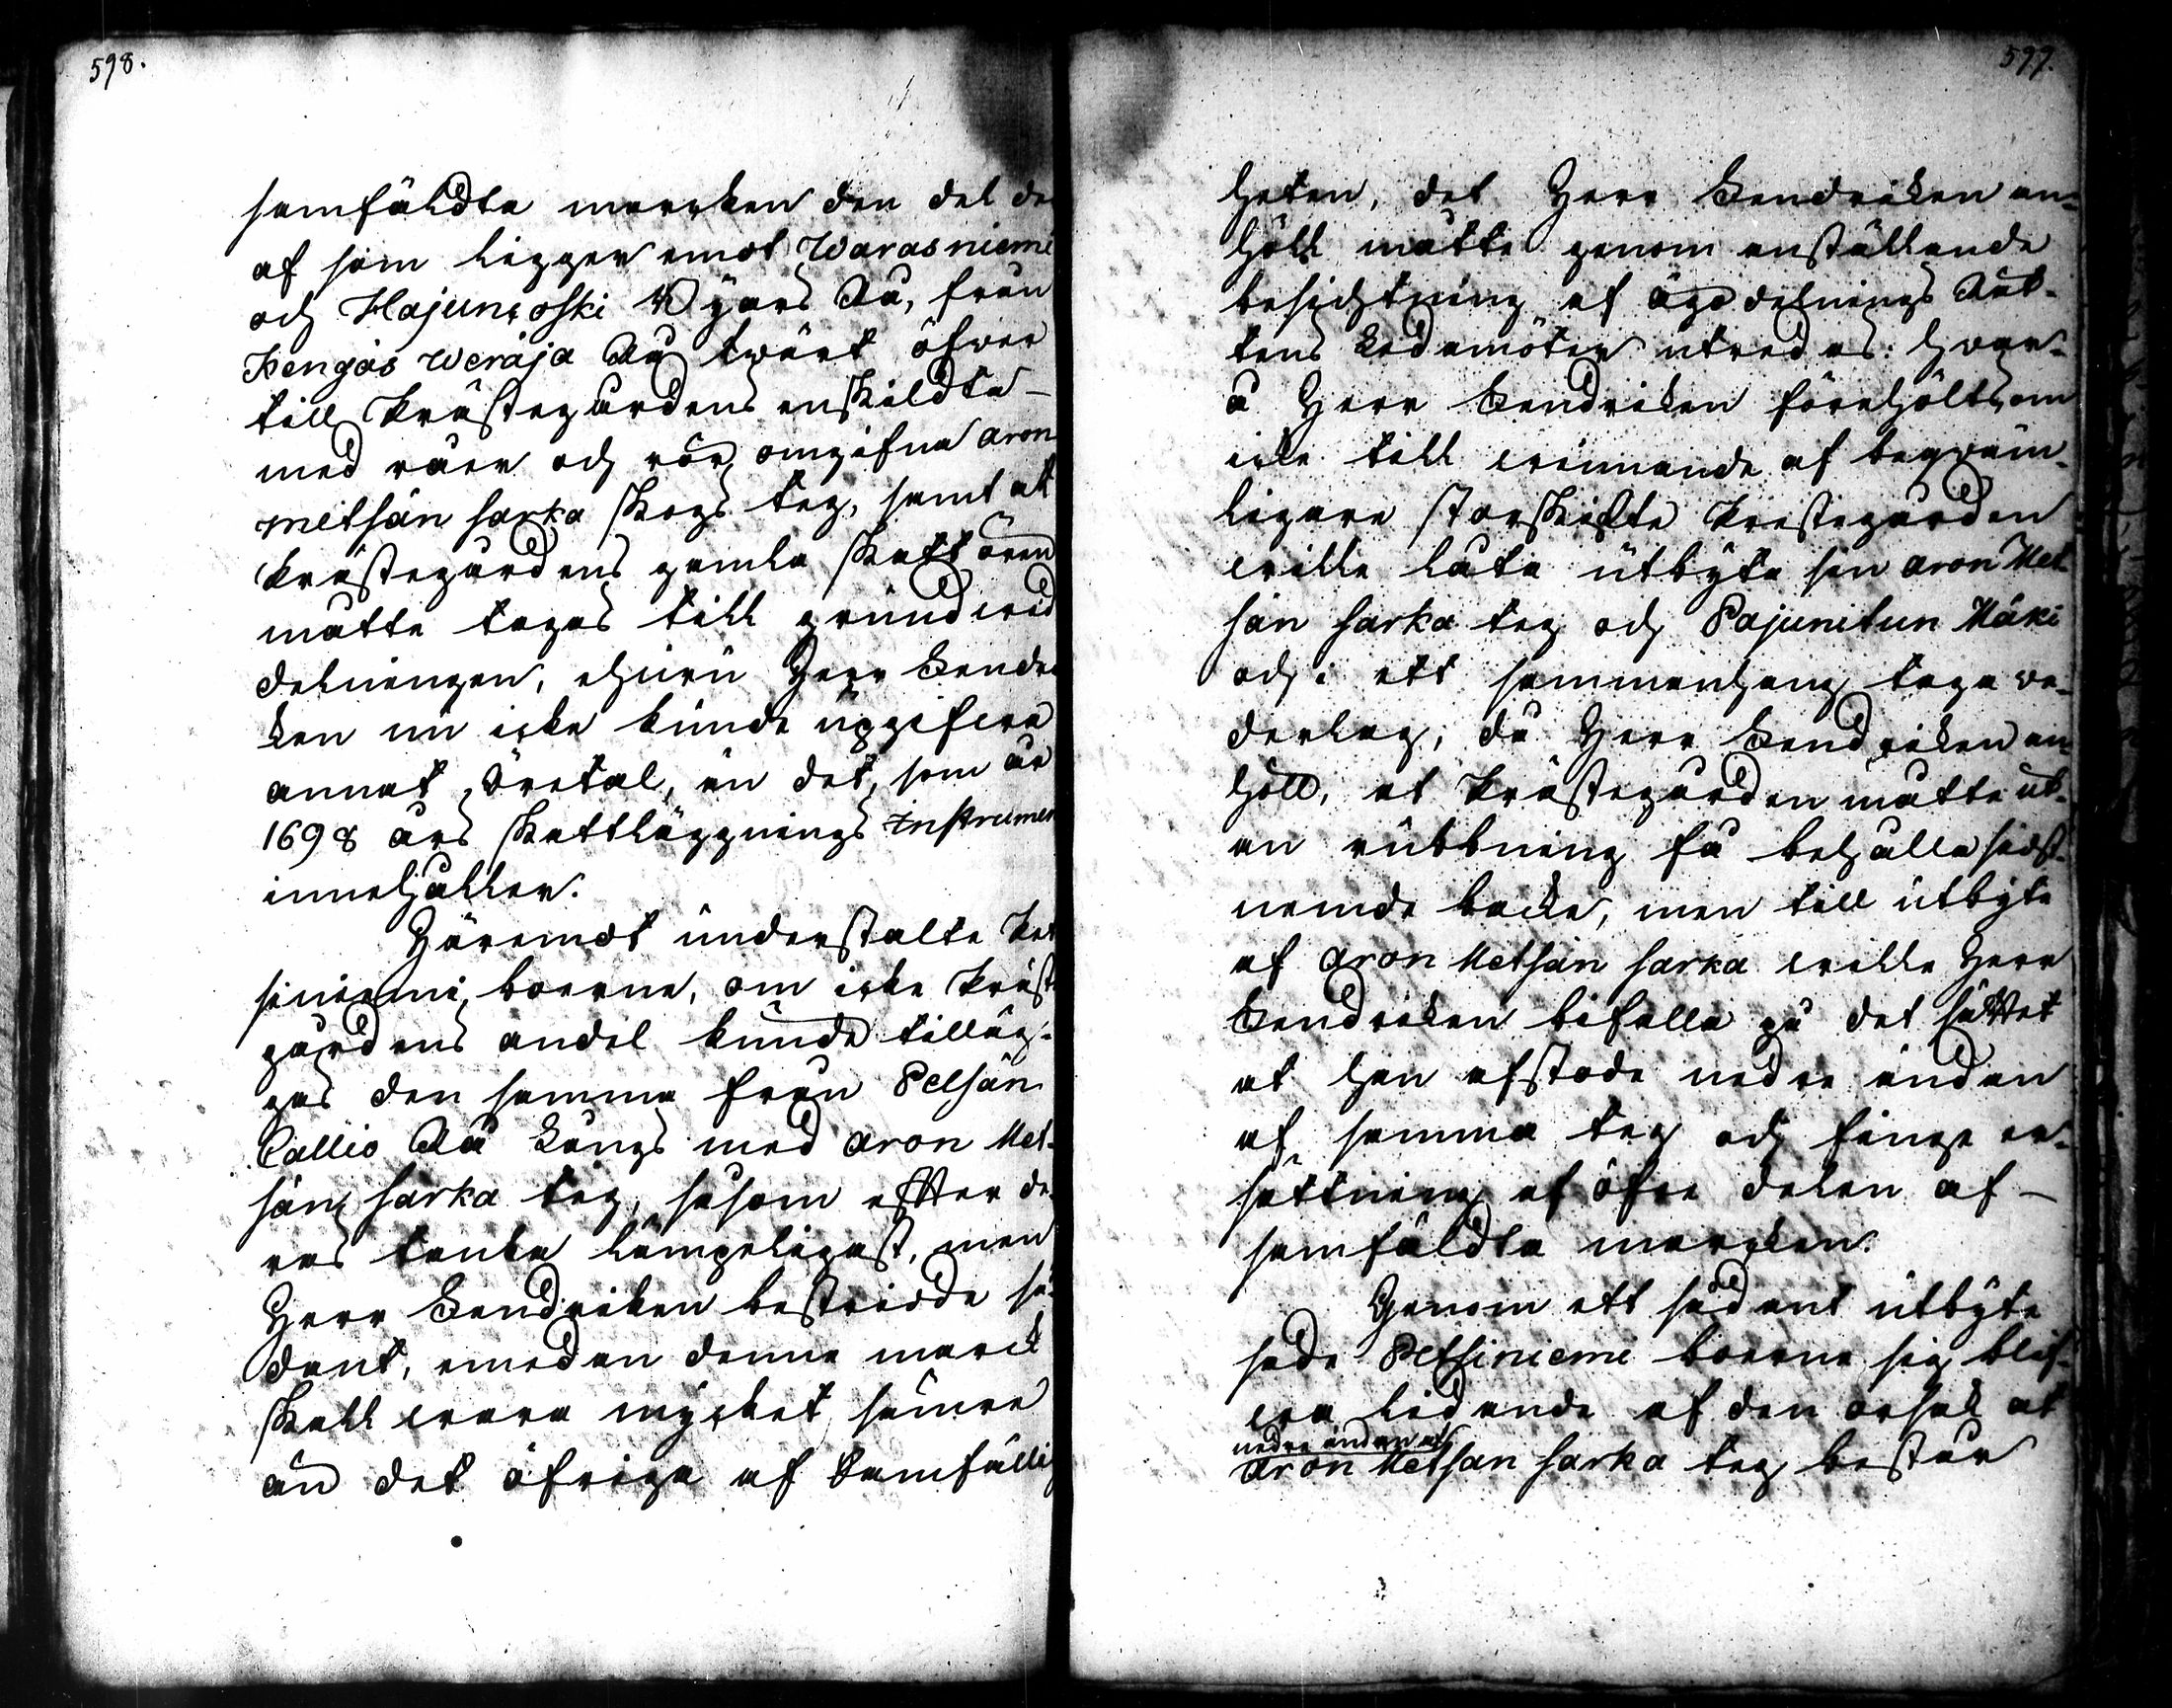 598.
samfäldta marcken den del der
af som ligger emot Warasniemi
och Hajuncoski Byars Rå, från
Kengäs weräja Rå twärt öfwer
till Prästegårdens enskildta
med råer och rör omgifna Aron
metsän sarka skogs teg, samt att
Prästegårdens gamla skatt ören
måtte tagas till grund wid
delningen, ehuru Herr Bendri
ken nu icke kunde uppgifwa
annat Öretal, än det, som är
1698 års skattläggnings Instrumen
innehåller.
Häremot understalte Pet
siniemi boerne, om icke Präst
gårdens andel kunde tilläg-
gas den samma från Pelsän
Callio Rå längs med Aron Met-
sän sarka teg, såsom efter de-
ras tanka lämpeligast, men
Herr Bendriken bestridde så-
dant, emedan denne marck
skall wara mycket sämre
än det öfriga af Samfällig
599.
heten, det Herr Bendriken an-
höll måtte genom anställande
besichtning af Ägodelnings Rät-
tens Ledamöter utredas: hwar-
å Herr Bendriken föreholts, om
icke till winnande af beqwäm-
ligare storskifte Prestegården
wille låta utbyta sin Aron Met
sän sarka teg och Pajunitun Mäki
och i ett sammanhang taga we-
derlag, då Herr Bendriken an
höll, at Prästegården måtte ut-
an rubbning få behålla sidst-
nemde backe, men till utbyte
af Aron Metsän sarka wille Herr
Bendriken bifalla på det sättet
at han afstode nedre ändan
af samma teg och finge er-
sättning af öfre delen af
samfäldta marcken.
Genom ett sådant utbyte
sade Petsiniemi boerne sig blif-
wa lidande af den orsak at
nedre ändan af
Aron Metsan sarka teg består